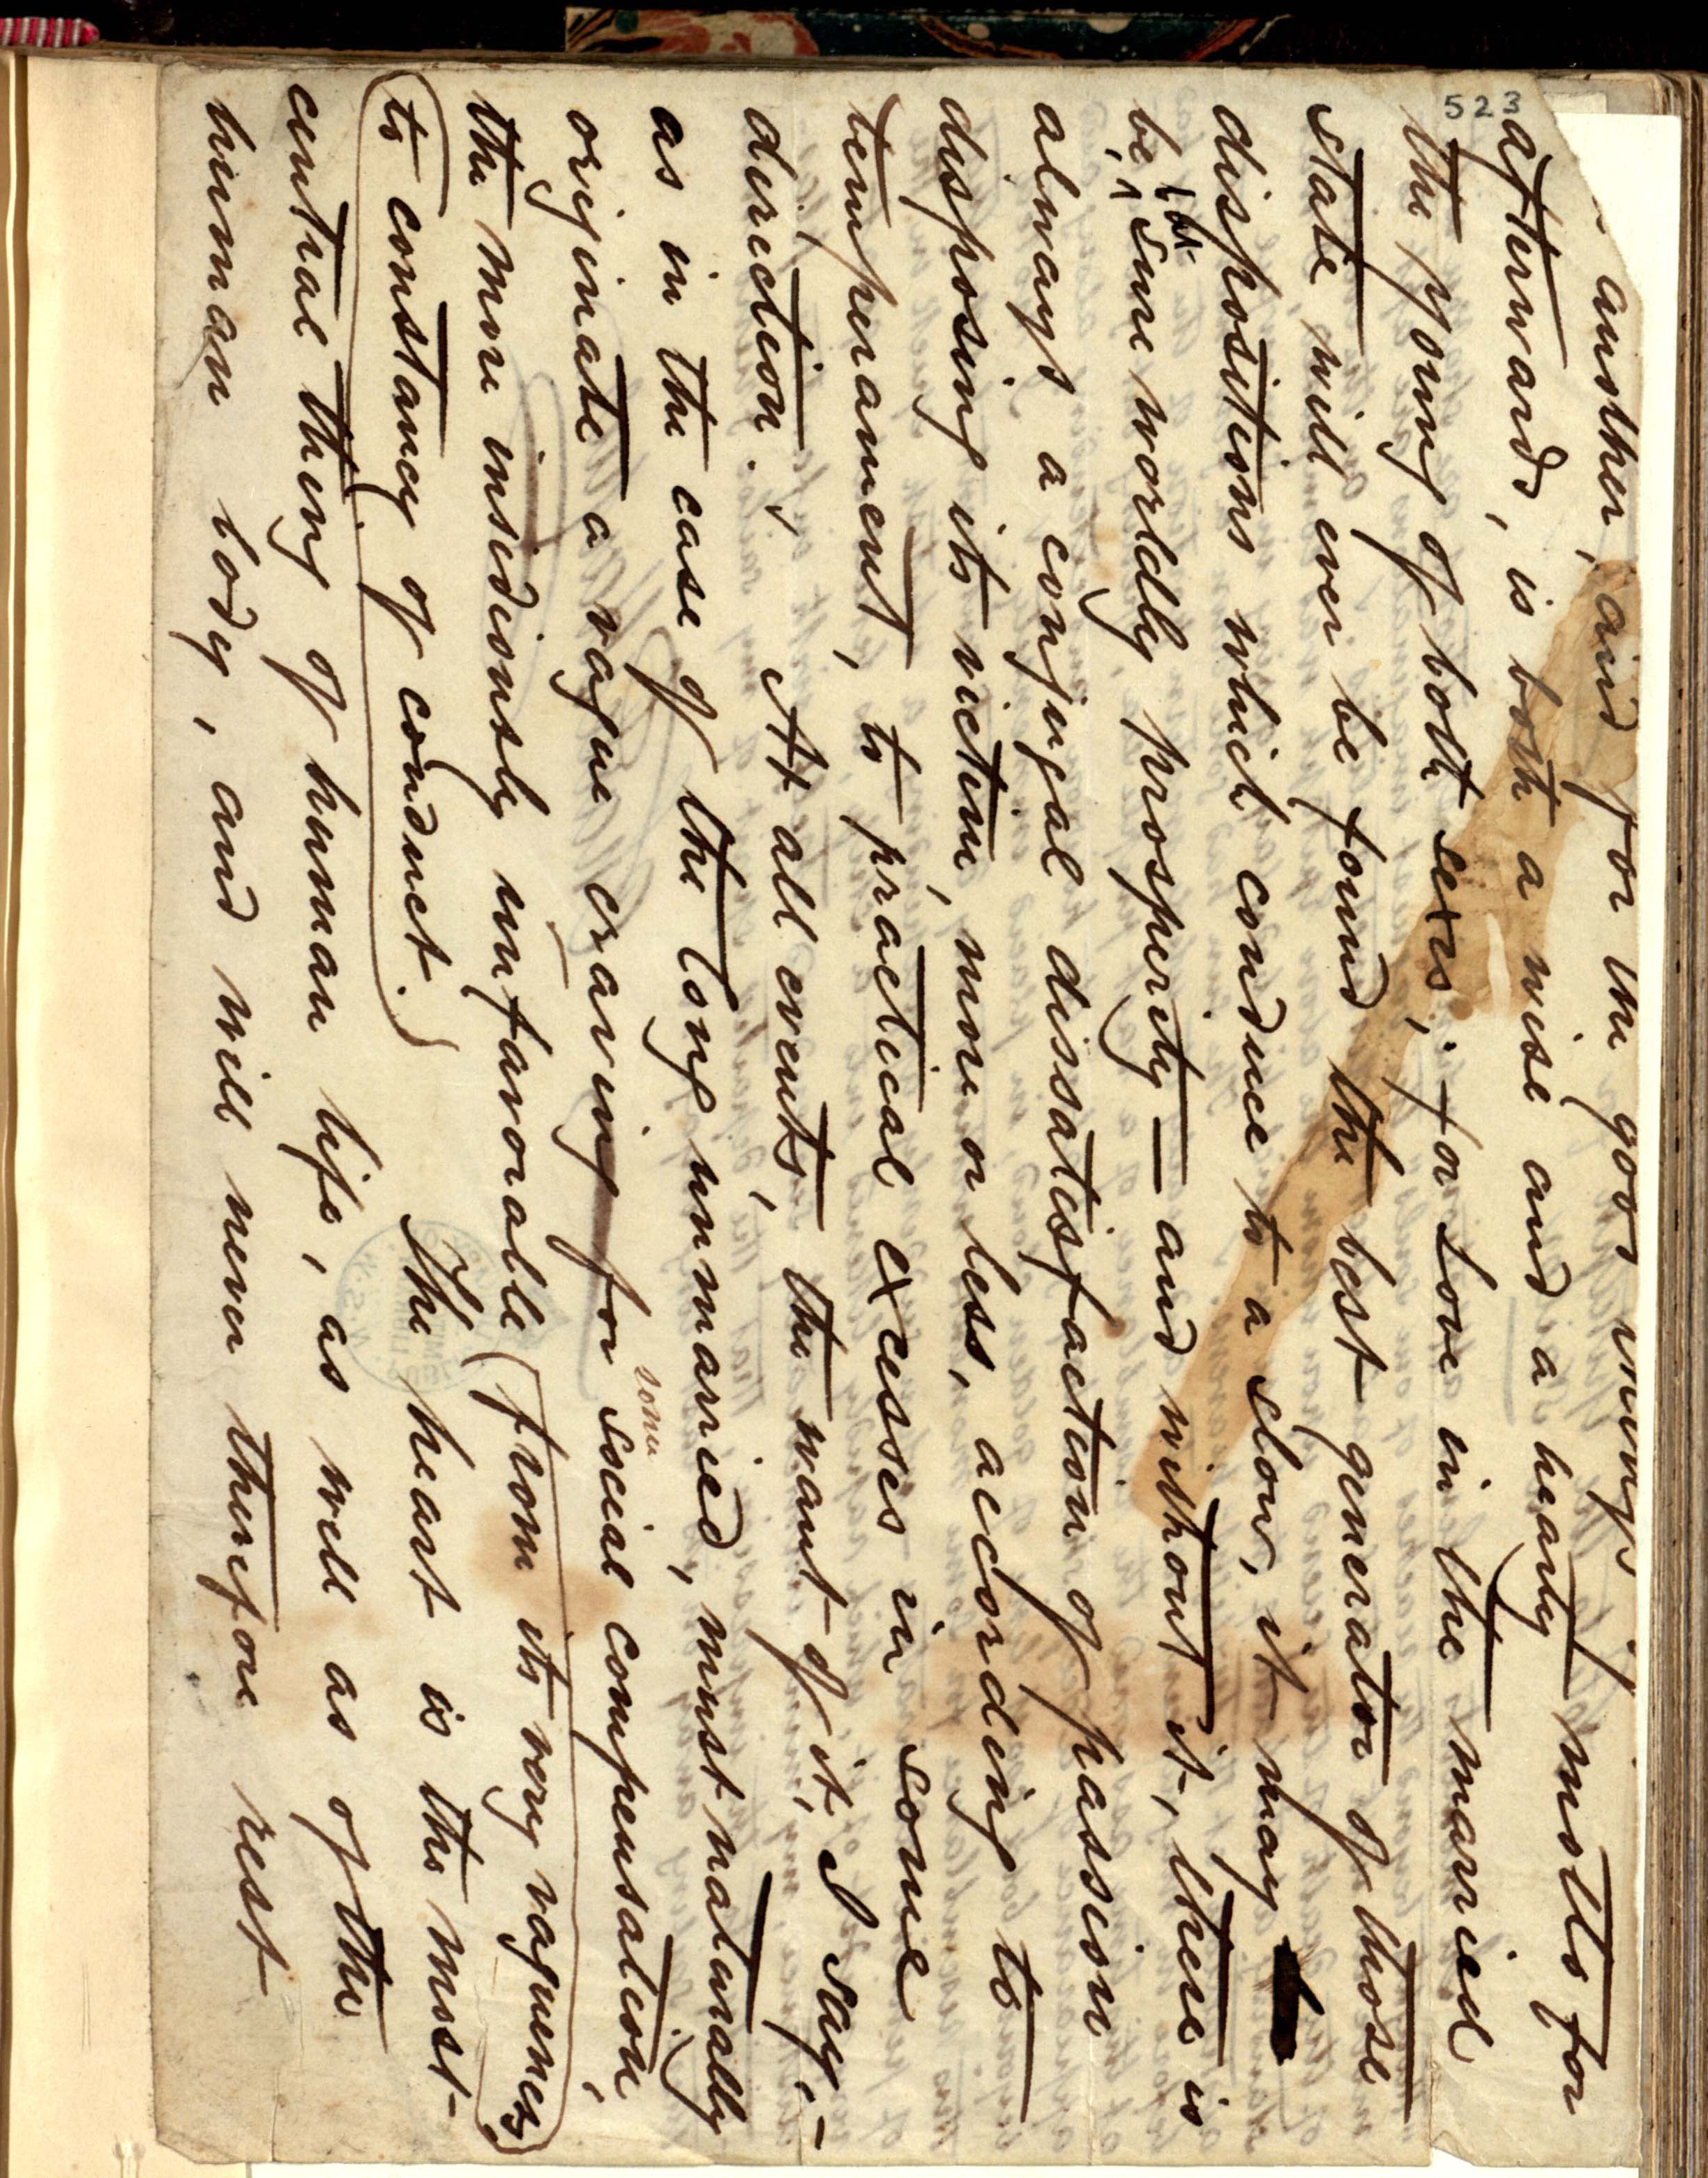 523
another, and for the good things
afterward, is both a wise and a hearty motto for
the young of both sexes; for Love in the married
state will ever be found the best generator of those
dispositions which conduce to a slow, it may
be, but sure worldly prosperity — and without it, there is
always a conjugal dissatisfaction of passion
disposing its victim, more or less, according to
temperament, to practical excesses in some
direction. At all events, the want of it, I say, —
as in the case of the long unmarried, must naturally
originate a vague craving for some social compensation,
the more insidiously unfavorable (from its very vagueness)
to constancy of conduct.) The heart is the most
central thing of human life, as well as of the
human body, and will never therefore rest